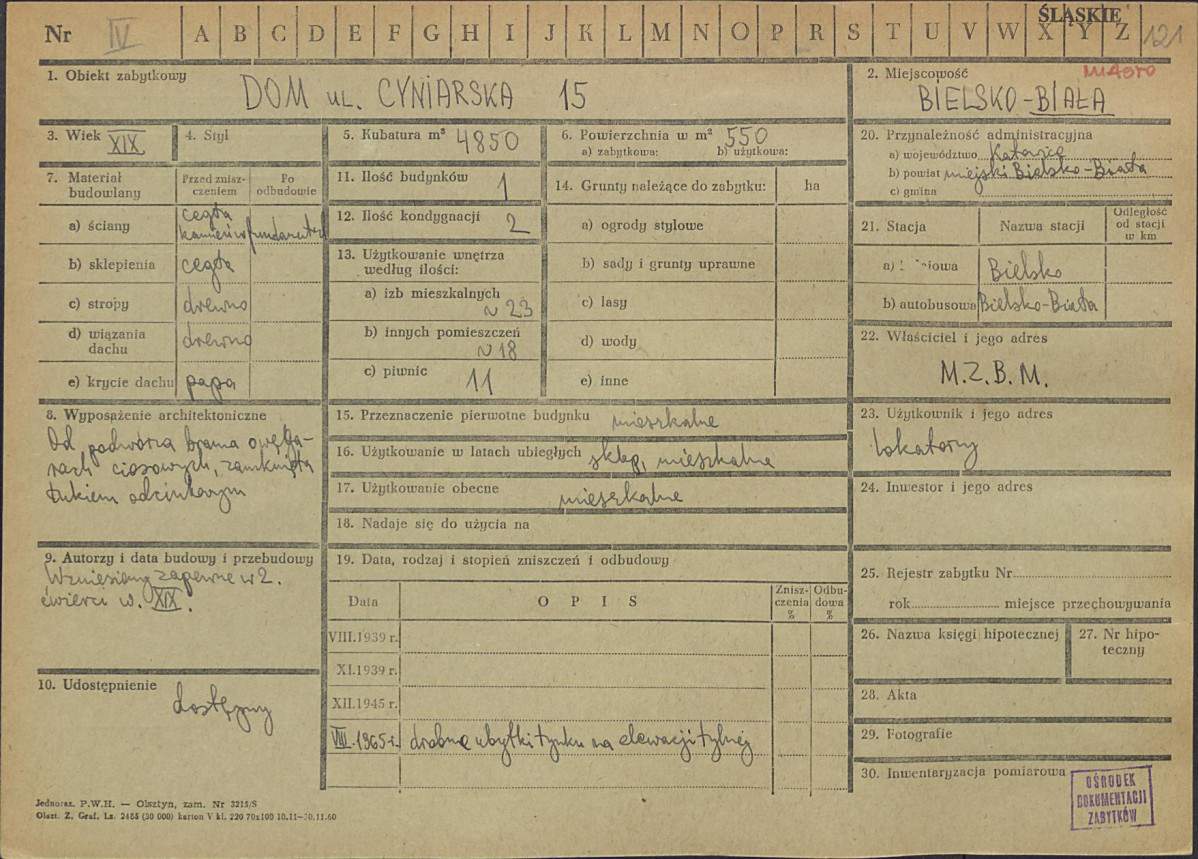 Nr IV A B C D E F G H I J K L M N O P R S T U V W X Y Z 121
ŚLĄSKIE
1. Obiekt zabytkowy
DOM UL. CYNIARSKA 15
2. Miejscowość MIASTO
BIELSKO-BIAŁA
3. Wiek XIX
4. Styl
5. Kubatura m³ 4850
6. Powierzchnia w m² 550
a) zabytkowa: b) użytkowa:
7. Materiał budowlany
Przed zniszczeniem
Po odbudowie
a) ściany cegła kamień w fundamentach
b) sklepienia cegła
c) stropy drewno
d) wiązania dachu drewno
e) krycie dachu papa
8. Wyposażenie architektoniczne
Od podwórza brama o węga-
rach ciosowych, zamknięta
łukiem odcinkowym
9. Autorzy i data budowy i przebudowy
Wzniesiony zapewne w 2.
ćwierci w. XIX.
10. Udostępnienie
dostępny
11. Ilość budynków 1
12. Ilość kondygnacji 2
13. Użytkowanie wnętrza
według ilości:
a) izb mieszkalnych
~ 23
b) innych pomieszczeń
~ 18
c) piwnic 11
14. Grunty należące do zabytku: ha
a) ogrody stylowe
b) sady i grunty uprawne
c) lasy
d) wody
e) inne
15. Przeznaczenie pierwotne budynku mieszkalne
16. Użytkowanie w latach ubiegłych sklep, mieszkalne
17. Użytkowanie obecne mieszkalne
18. Nadaje się do użycia na
19. Data, rodzaj i stopień zniszczeń i odbudowy
Data OPIS Zniszczenia % Odbudowa %
VIII.1939 r.
XI.1939 r.
XII.1945 r.
VIII.1965 r. drobne ubytki tynku na elewacji tylnej
20. Przynależność administracyjna
a) województwo Katowice
b) powiat miejski Bielsko-Biała
c) gmina
21. Stacja Nazwa stacji Odległość od stacji w km
a) Bielsko
b) autobusowa Bielsko-Biała
22. Właściciel i jego adres
M.Z.B.M.
23. Użytkownik i jego adres
lokatorzy
24. Inwestor i jego adres
25. Rejestr zabytku Nr
rok miejsce przechowywania
26. Nazwa księgi hipotecznej
27. Nr hipo-
teczny
28. Akta
29. Fotografie
30. Inwentaryzacja pomiarowa
OŚRODEK
DOKUMENTACJI
ZABYTKÓW
Jednoraz. P.W.H. — Olsztyn, zam. Nr 3215/S
Olszt. Z. Graf. Lz. 2485 (30 000) karton V kl. 220 70x100 10.11—30.11.60